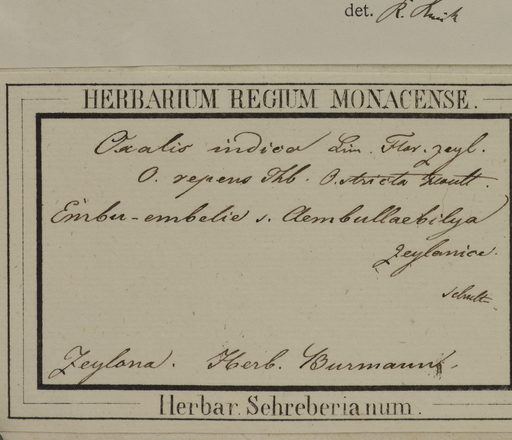 det. R.
HERBARIUM REGIUM MONACENSE.
Oxalis indica Lin. Flor. zeyl.
O. repens Thb. O. stricta Houtt.
Embu-embelie s. Aembullaebilya
Zeylanica.
Zeylona. Herb. Burmanni.
Herbar. Schreberianum.